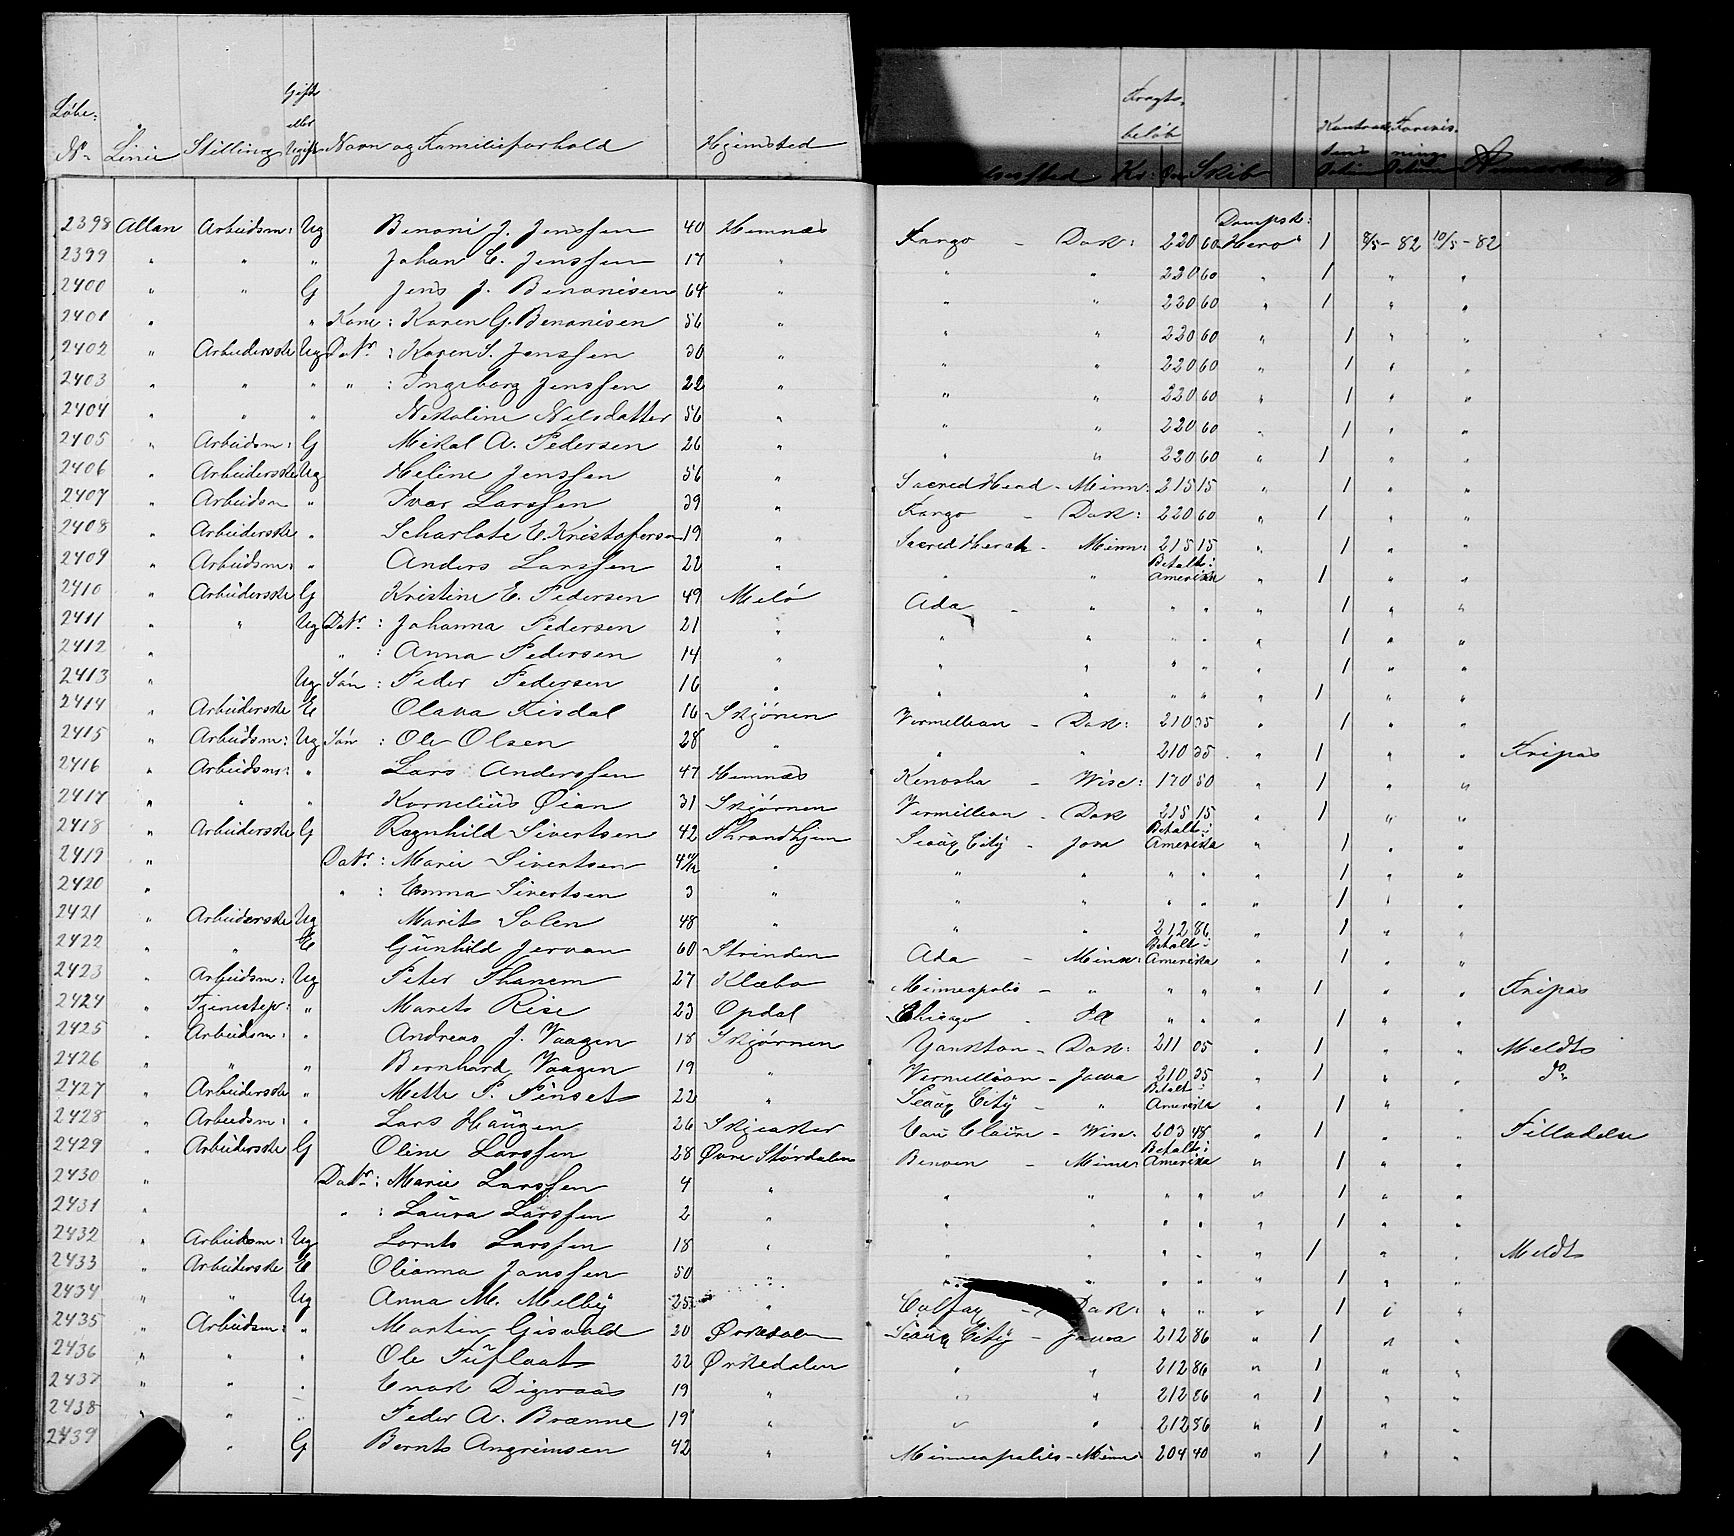 Løbe-
No Linie Stilling Gift eller Ugift Navn og Familieforhold Hjemsted Fragtbeløb Kr: Skib Anmærkning
2398 Allan Arbeidsm: Ug Benoni J. Jenssen 40 Hemnæs Fargo - Dak: 220 60 Dampsk: Hero 1 8/5 - 82 10/5 - 82
2399 " " " Johan C. Jenssen 17 " " " 220 60 " 1 " "
2400 " " G Jens J. Benonisen 64 " " " 220 60 " 1 " "
2401 " " Kone: Karen G. Benonisen 56 " " " 220 60 " 1 " "
2402 " Arbeiderske Ug Datr: Karen S. Jenssen 30 " " " 220 60 " 1 " "
2403 " " " " : Ingeborg Jenssen 22 " " " 220 60 " 1 " "
2404 " " " Nekoline Nilsdatter 56 " " " 220 60 " 1 " "
2405 " Arbeidsm: G Mikal A. Pedersen 26 " " " 220 60 " 1 " "
2406 " Arbeiderske Ug Heline Jenssen 56 " Sacred Head - Minn: 215 15 " 1 " "
2407 " Arbeidsm " Ivar Larssen 39 " Fargo - Dak: 220 60 " 1 " "
2408 " Arbeiderske " Scharlote E. Kristofersen 19 " Sacred Herah - Minn: 215 15 " 1 " "
2409 " Arbeidsm: " Anders Larssen 22 " " " Betalt i Amerika " 1 " "
2410 " Arbeiderske G Kristine E. Pedersen 49 Melø Ada - " " " " 1 " "
2411 " " Ug Datr: Johanna Pedersen 21 " " " " " " 1 " "
2412 " " : Anna Pedersen 14 " " " " " " 1 " "
2413 " Ug Søn : Peder Pedersen 16 " " " " " " 1 " "
2414 " Arbeiderske E Olava Fisdal 16 Skjønen Vermellean - Dak: 210 35 " 1 " "
2415 " Arbeidsm: Ug Søn : Ole Olsen 28 " " " 210 35 " 1 " " Fripas
2416 " Arbeidsm: " Lars Anderssen 47 Hemnæs Kenosha - Wisc: 170 50 " 1 " "
2417 " " " Kornelius Øian 31 Skjørnen Vermillean - Dak 215 15 " 1 " "
2418 " Arbeiderske G Ragnhild Sivertsen 42 Throndhjem Seaux City - Jova Betalt i Amerika " 1 " "
2419 " Datr: Marie Sivertsen " " " " " " 1 " "
2420 " " : Emma Sivertsen 3 " " " " " " 1 " "
2421 " Arbeiderske Ug Marit Solen 48 " " " 212 86 " 1 " "
2422 " " E Günhild Jervan 60 Strinden Ada - Minn: Betalt i Amerika " 1 " "
2423 " Arbeidsm: Ug Peter Thanem 27 Klæbo Minneapolis - " " " " 1 " " Fripas
2424 " Tjenestep: " Marets Rise 23 Opdal Chicago - " " " 1 " "
2425 " Arbeidsm: " Andreas J. Vaagen 18 Skjørnen Yankton - Dak: 211 05 " 1 " " Meldt
2426 " " " Bernhard Vaagen 19 " Vermellion - Jowa 210 35 " 1 " " do
2427 " Arbeiderske " Mette P. Finset 22 " Seaux City - " Betalt i Amerika " 1 " "
2428 " Arbeidsm: " Lars Haugen 26 Skjeaker Eau Claire - Wisc: 203 48 " 1 " " Filladelse
2429 " Arbeiderske G Oline Larssen 28 Øvre Størdalen Benson - Minn: Betalt i Amerika " 1 " "
2430 " Datr: Marie Larssen 4 " " " " " " 1 " "
2431 " " : Laura Larssen 2 " " " " " " 1 " "
2432 " Arbeidsm: Ug Lornts Larssen 18 " " " " " " 1 " " Meldt
2433 " Arbeiderske E Olianna Janssen 50 " " " " " " 1 " "
2434 " " Ug Anna M. Melby 25 " Colfax - Dak: " " " 1 " "
2435 " Arbeidsm: " Martin Gisvold 20 Ørkedalen Seaux City - Jowa 212 86 " 1 " "
2436 " " " Ole Tüflaat 22 Ørkedalen " " 212 86 " 1 " "
2437 " " " Enok Digeraas 19 " " " 212 86 " 1 " "
2438 " " " Peder A. Brænne 19 " " " 212 86 " 1 " "
2439 " G Bernts Angrimsen 42 " Minneapolis - Minn: 204 40 " 1 " "